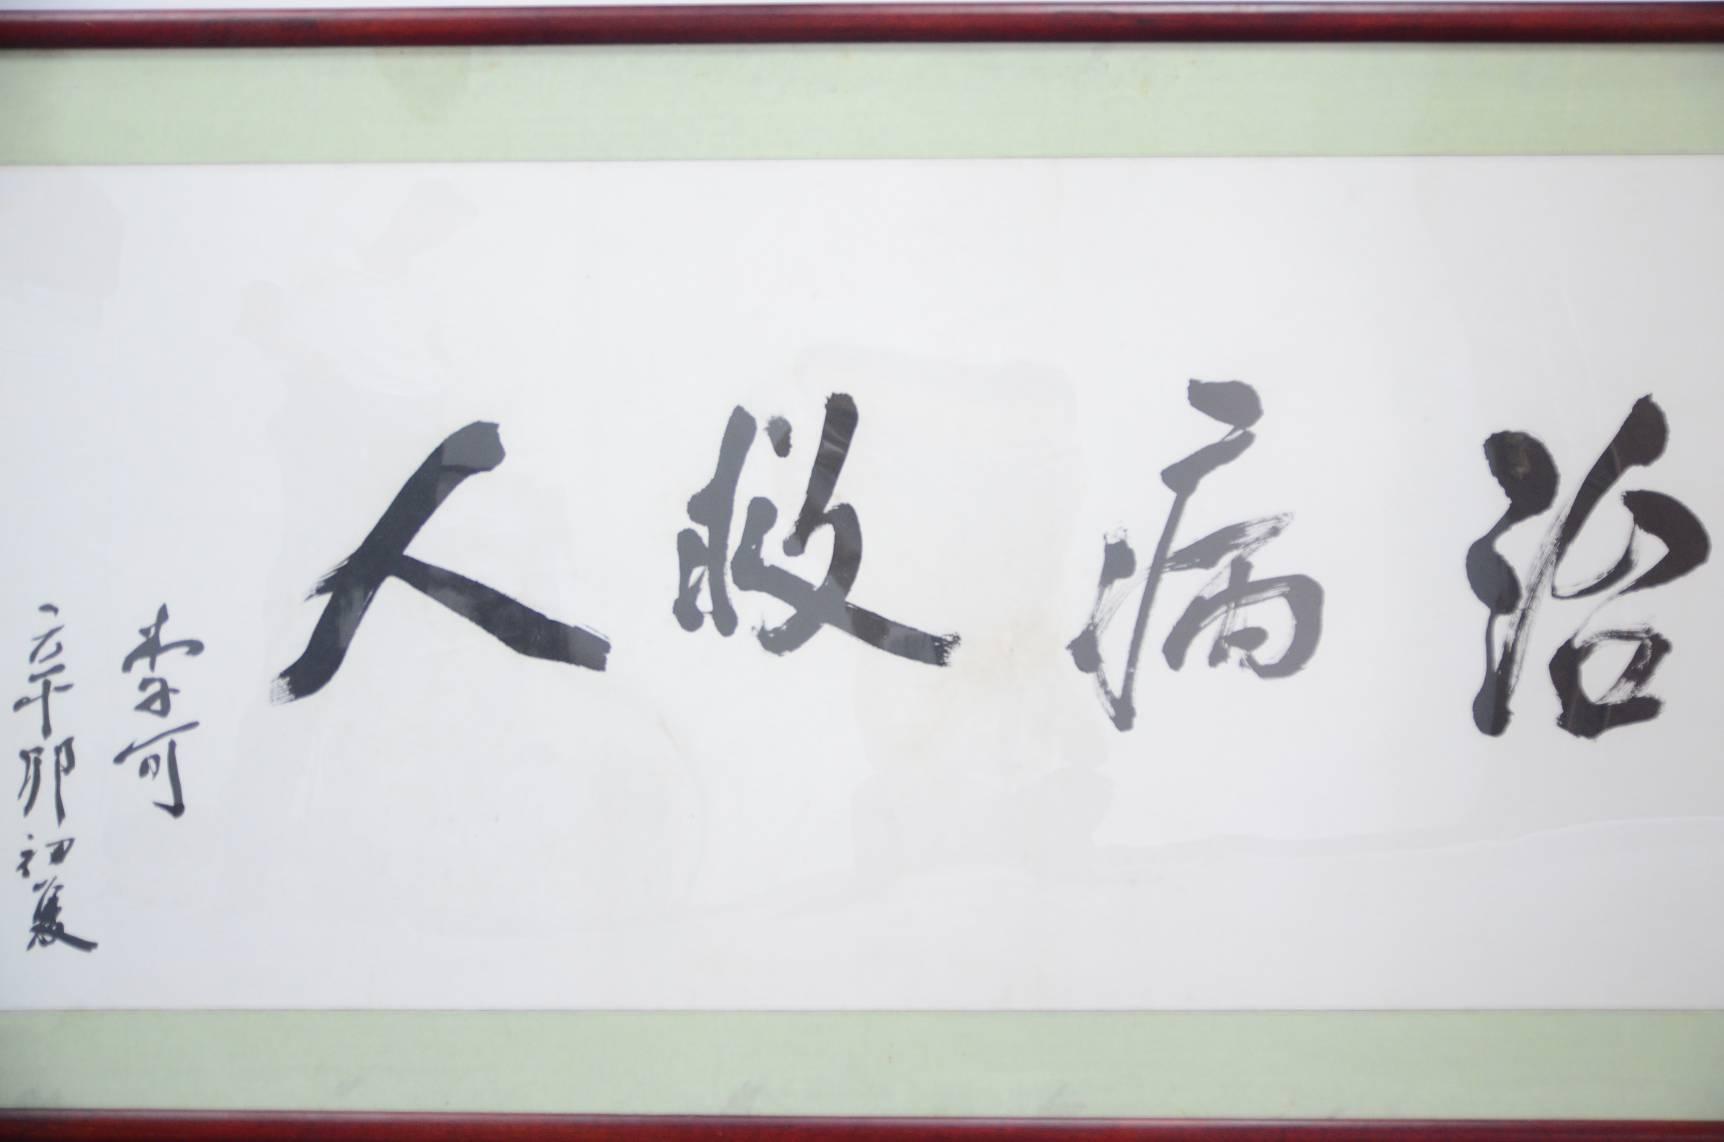 治病救人
李可
辛卯初夏